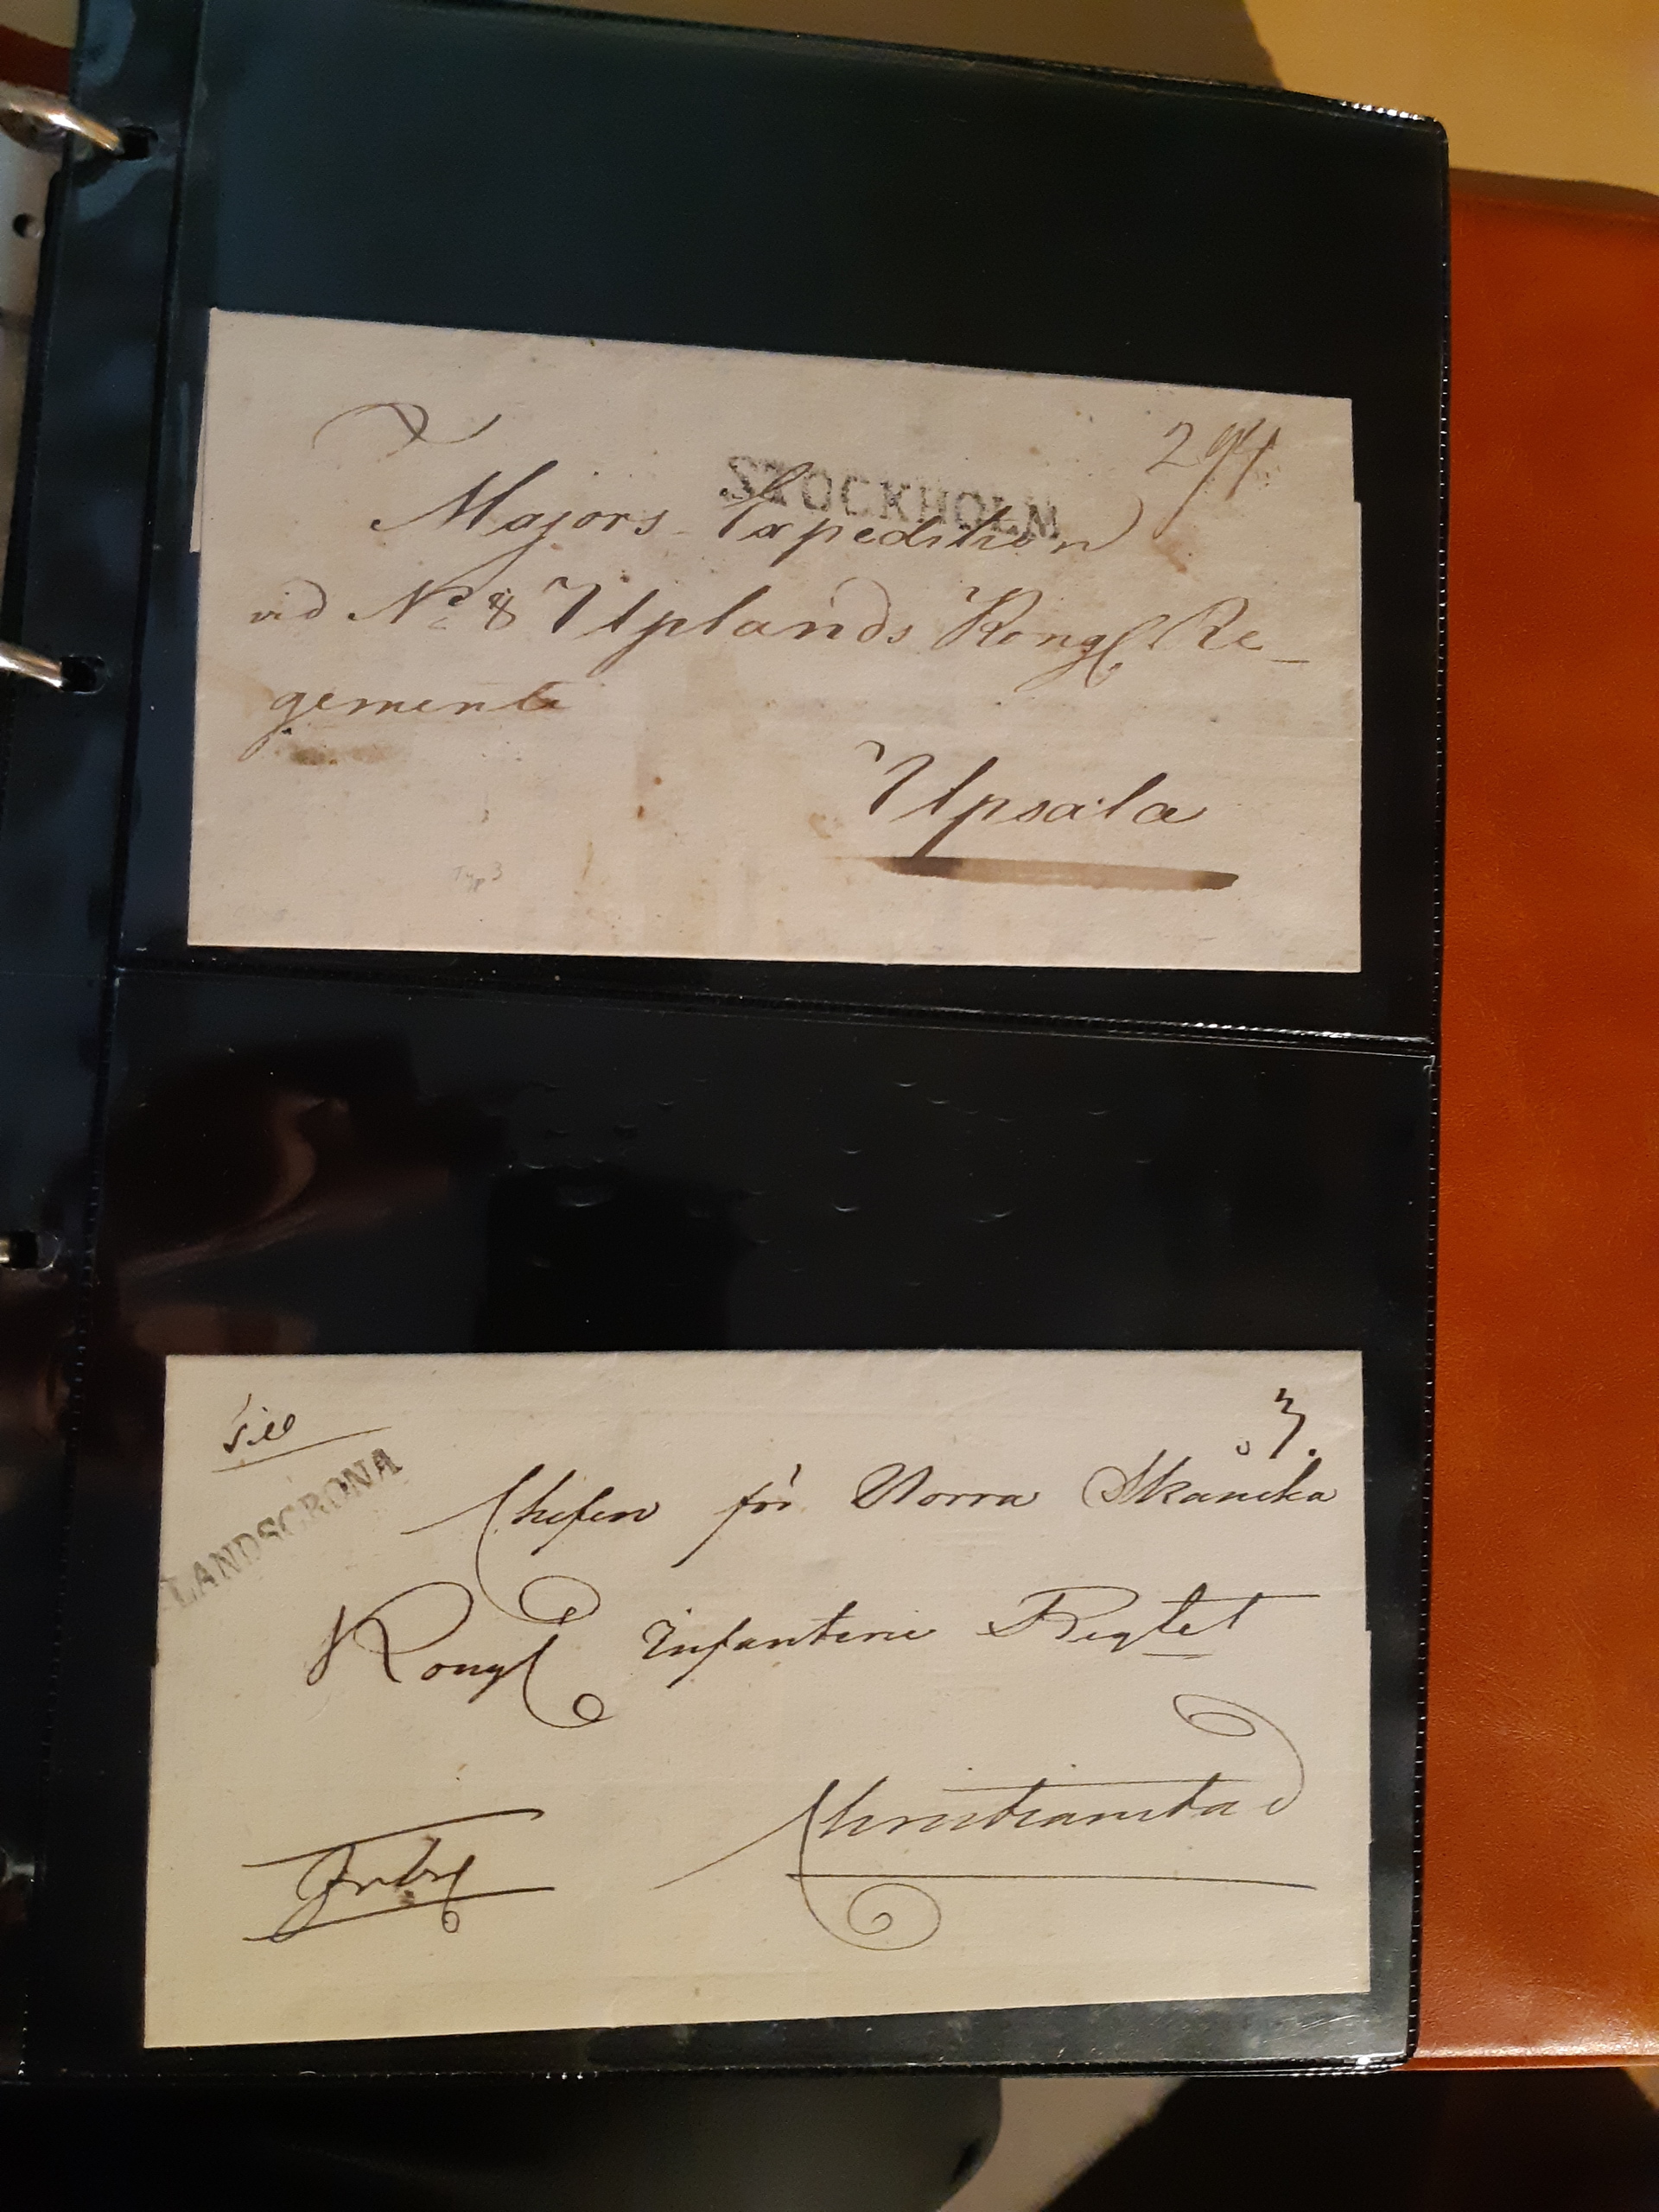 294
STOCKHOLM
Majors Expedition
vid No 8 Uplands Kongl Re-
gemente
Upsala
Typ 3
Till
3.
LANDSCRONA
Chefen för Norra Skånska
Kongl Infanterie Regtet
Christianstad